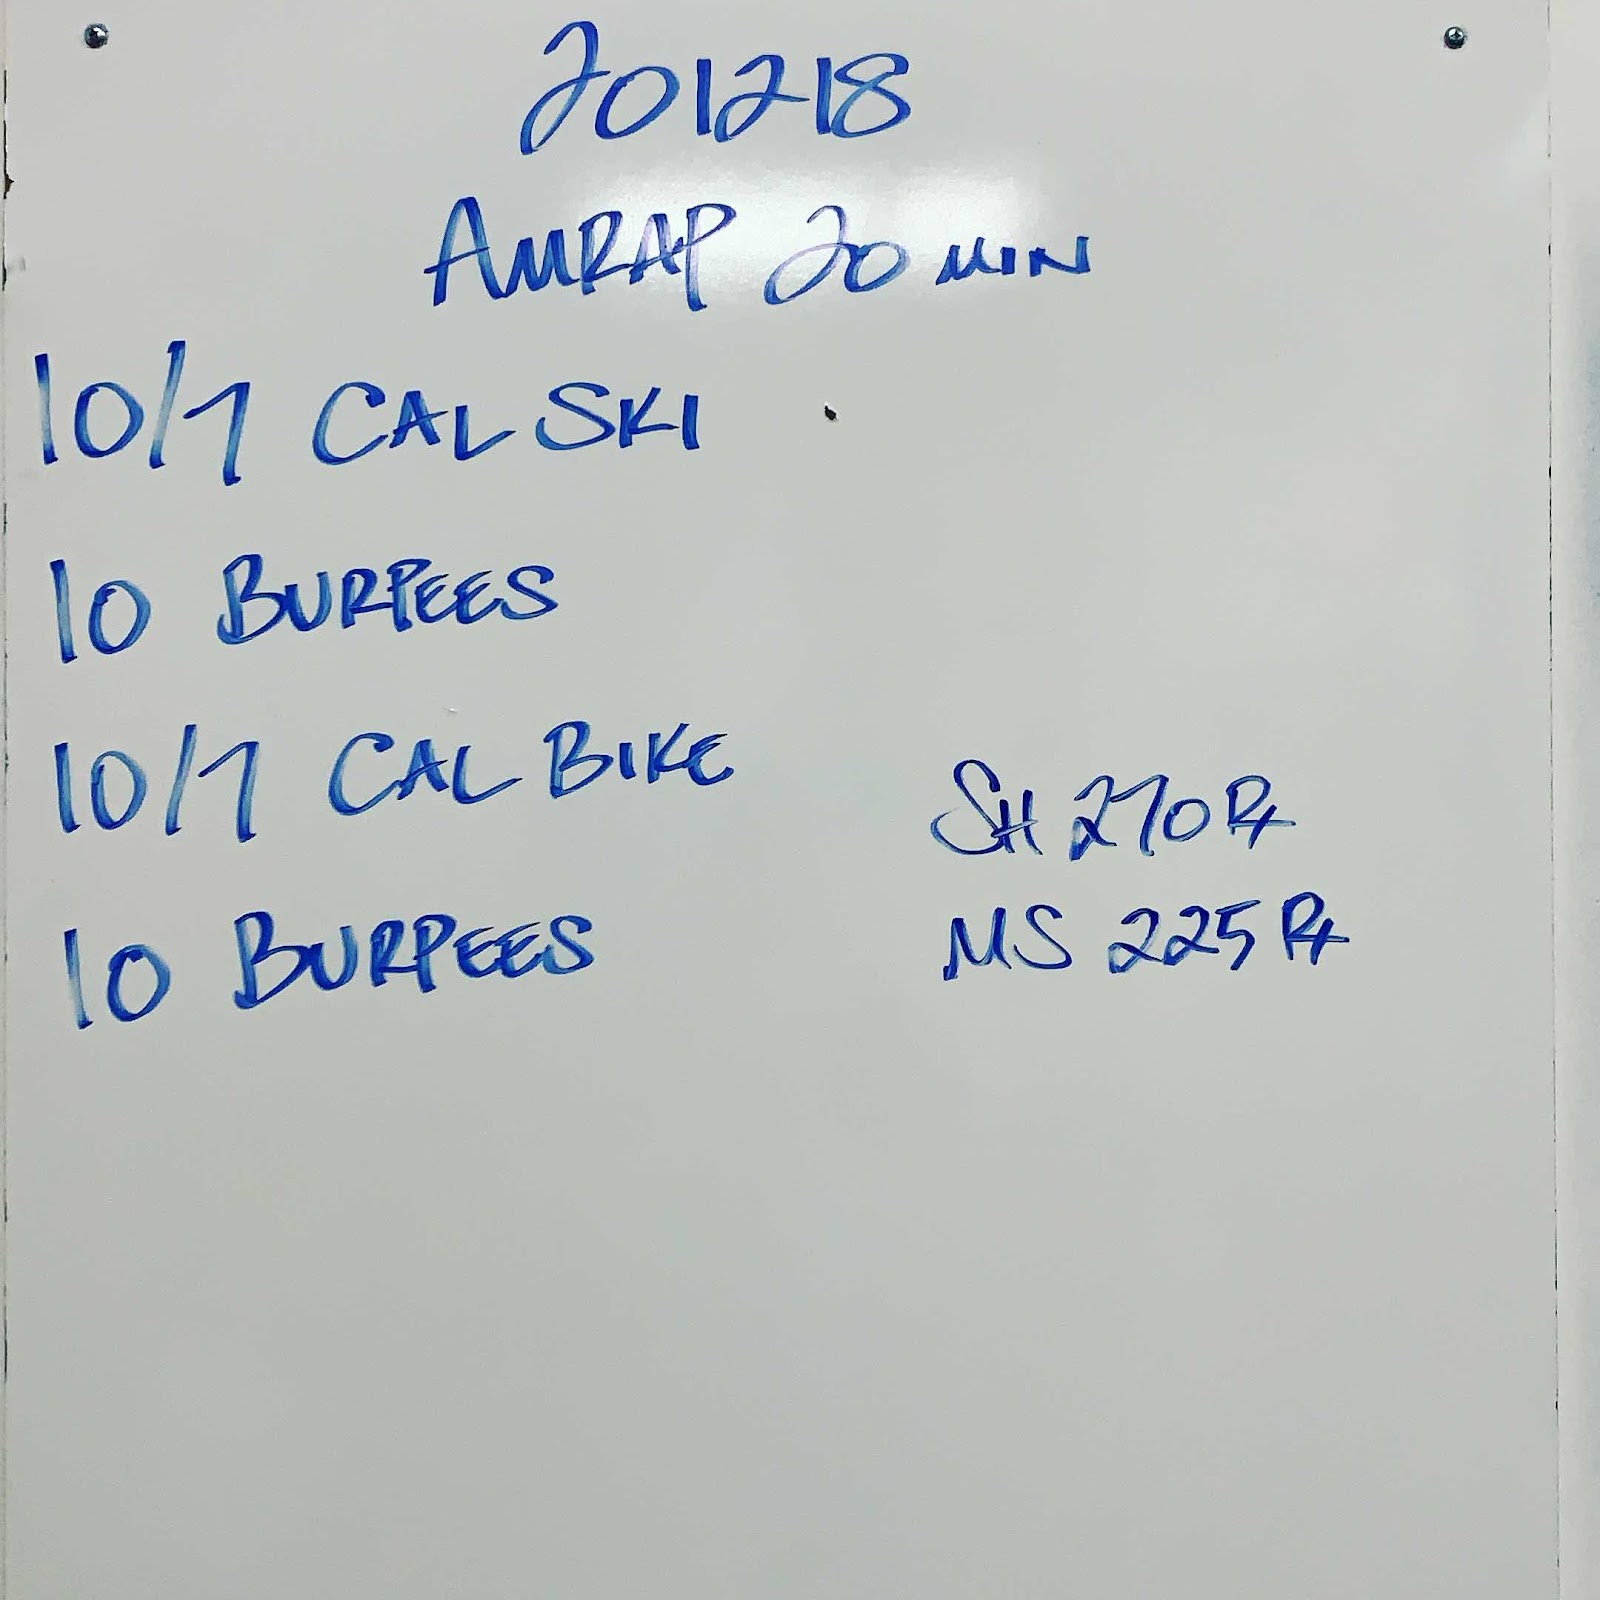 201218
AMRAP 20 MIN
10/7 CAL SKI
10 BURPEES
10/7 CAL BIKE
10 BURPEES
SH 270 Rx
MS 225 Rx